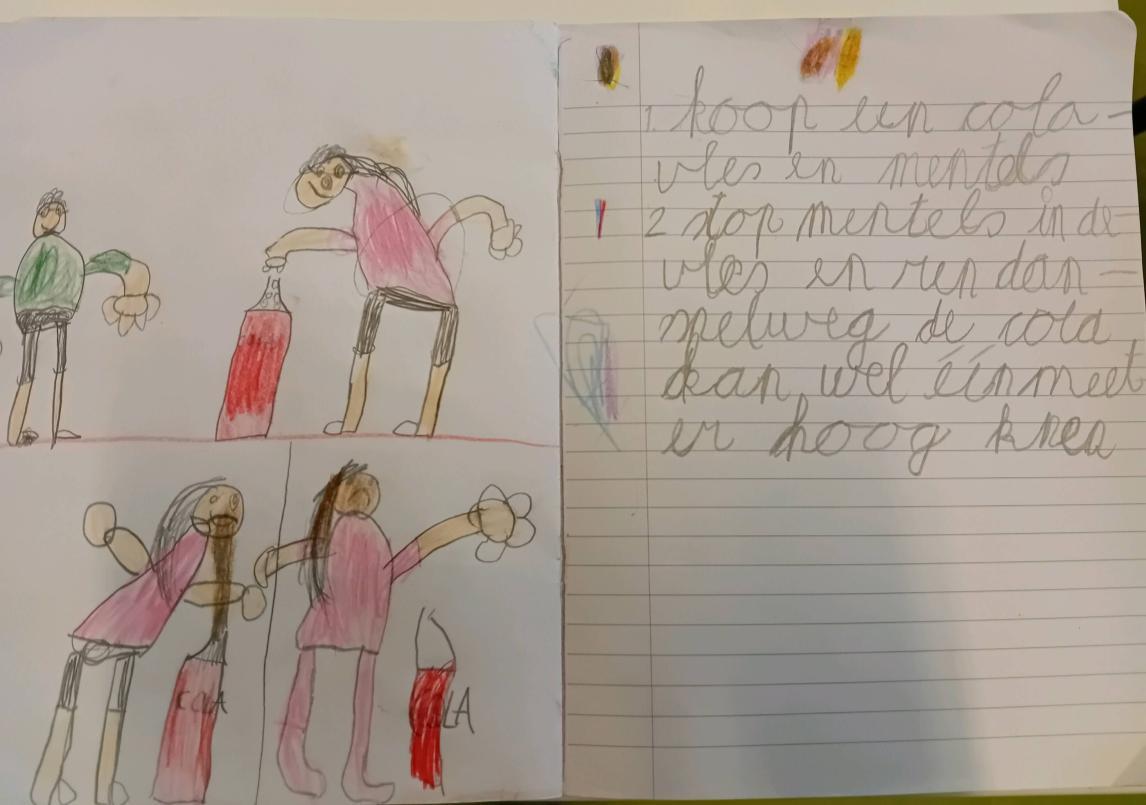 1. koop een cola-
vles en mentels
2 stop mentels in de-
vles en ren dan-
snelweg de cola
kan wel één meet
er hoog knea
COLA
COLA